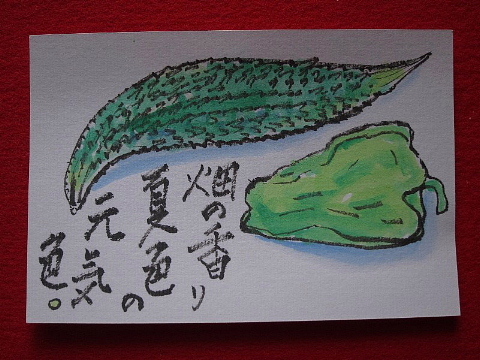 畑の香り
夏色の
元気
色。